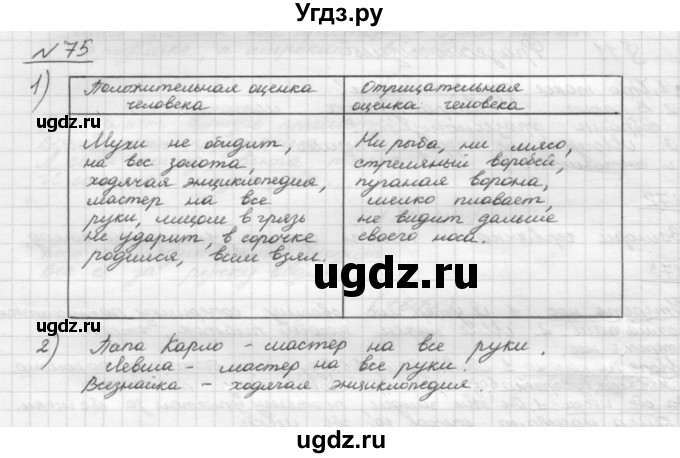 Угдз.ру
N 75
1)
Положительная оценка человека
Отрицательная оценка человека
Мухи не обидит,
на вес золота,
ходячая энциклопедия,
мастер на все
руки, лицом в грязь
не ударит, в сорочке
родился, всем взял.
Ни рыба, ни мясо,
стреляный воробей,
пуганая ворона,
мелко плавает,
не видит дальше
своего носа.
2) Папа Карло - мастер на все руки.
Левша - мастер на все руки.
Всезнайка - ходячая энциклопедия.
ugdz.ru
ugdz.ru
ugdz.ru
ugdz.ru
ugdz.ru
ugdz.ru
ugdz.ru